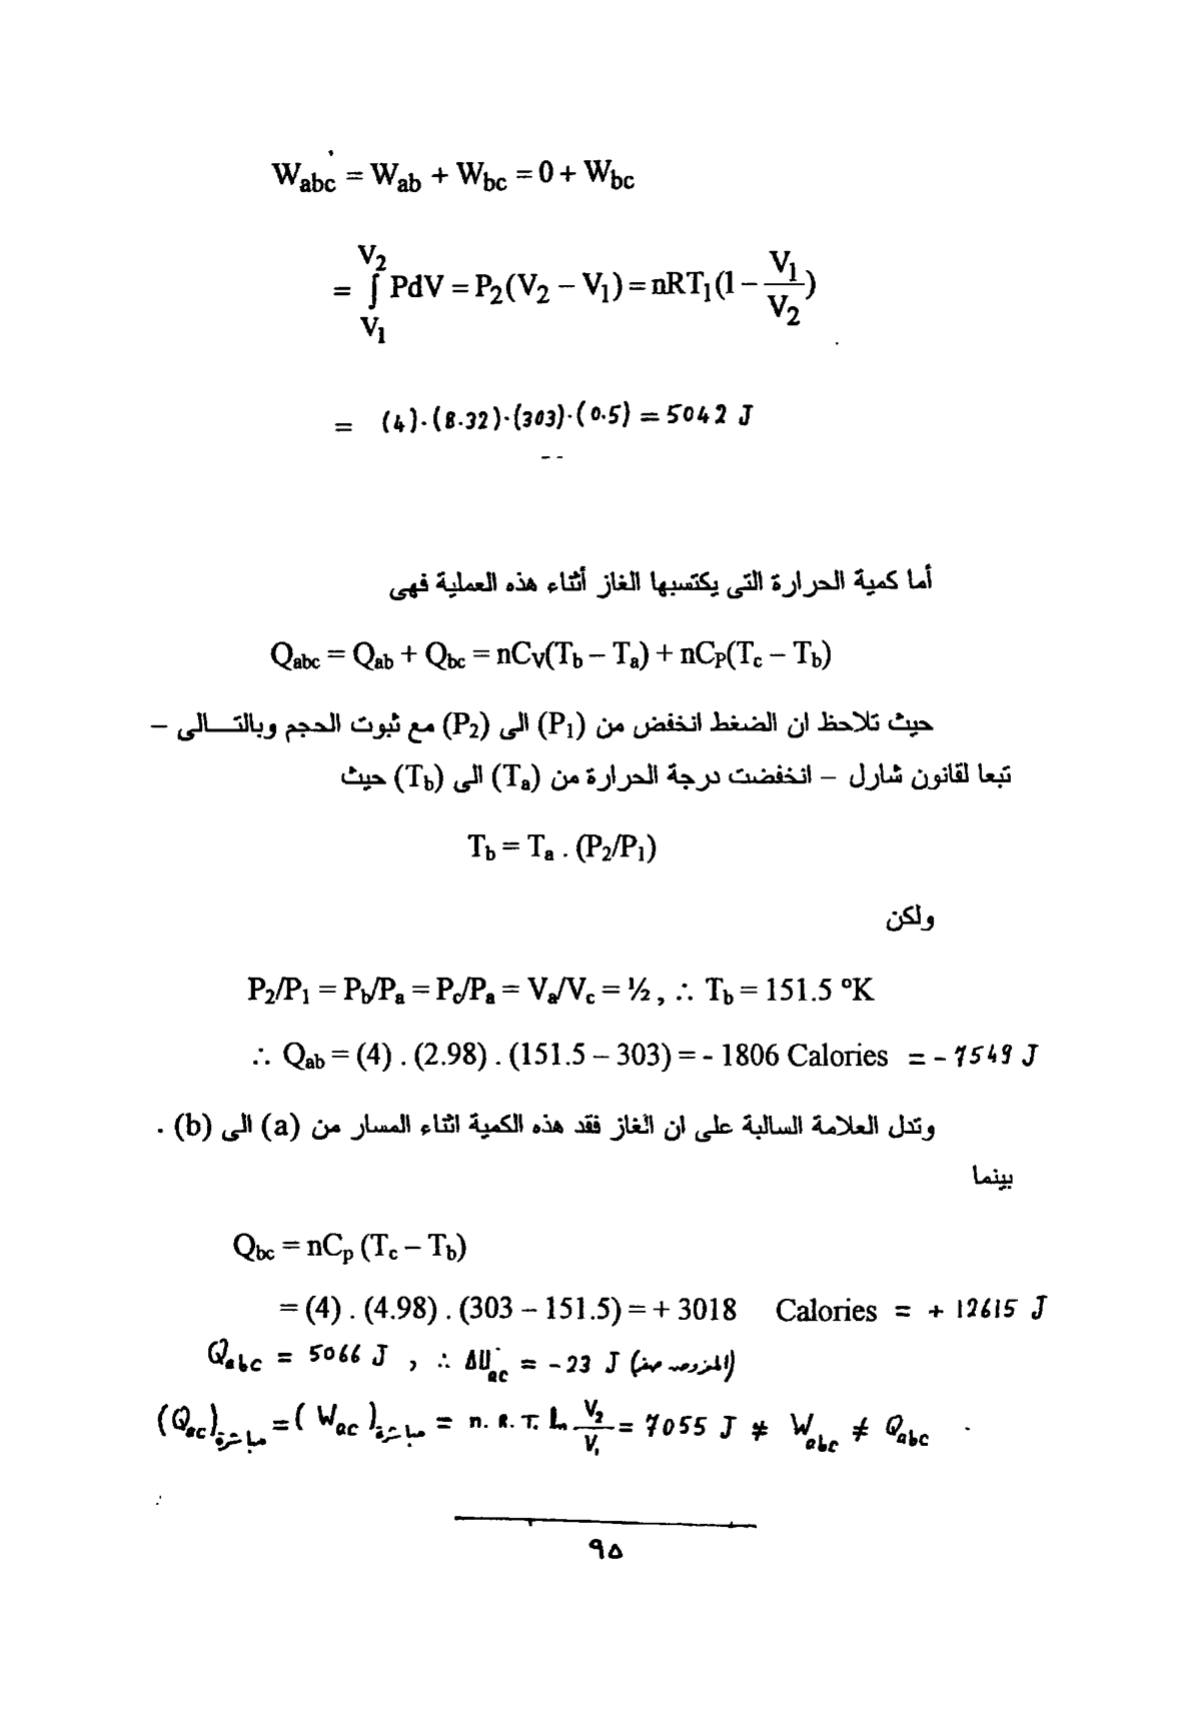 Wabc = Wab + Wbc = 0 + Wbc
= ∫ V₁ V₂ PdV = P₂(V₂ – V₁) = nRT₁(1 – V₁/V₂)
= (4)·(8.32)·(303)·(0.5) = 5042 J
أما كمية الحرارة التى يكتسبها الغاز أثناء هذه العملية فهى
Qabc = Qab + Qbc = nCV(Tb – Ta) + nCP(Tc – Tb)
حيث تلاحظ ان الضغط انخفض من (P₁) الى (P₂) مع ثبوت الحجم وبالتـــالى –
تبعا لقانون شارل – انخفضت درجة الحرارة من (Ta) الى (Tb) حيث
Tb = Ta . (P₂/P₁)
ولكن
P₂/P₁ = Pb/Pa = Pc/Pa = Va/Vc = ½ , ∴ Tb = 151.5 °K
∴ Qab = (4) . (2.98) . (151.5 – 303) = - 1806 Calories = - 7549 J
وتدل العلامة السالبة على ان الغاز فقد هذه الكمية اثناء المسار من (a) الى (b) .
بينما
Qbc = nCp (Tc – Tb)
= (4) . (4.98) . (303 – 151.5) = + 3018 Calories = + 12615 J
Qabc = 5066 J , ∴ ΔUac = -23 J (المفروض صفر)
(Qac)مباشرة = (Wac)مباشرة = n. R. T. Ln V₂/V₁ = 7055 J ≠ Wabc ≠ Qabc
٩٥